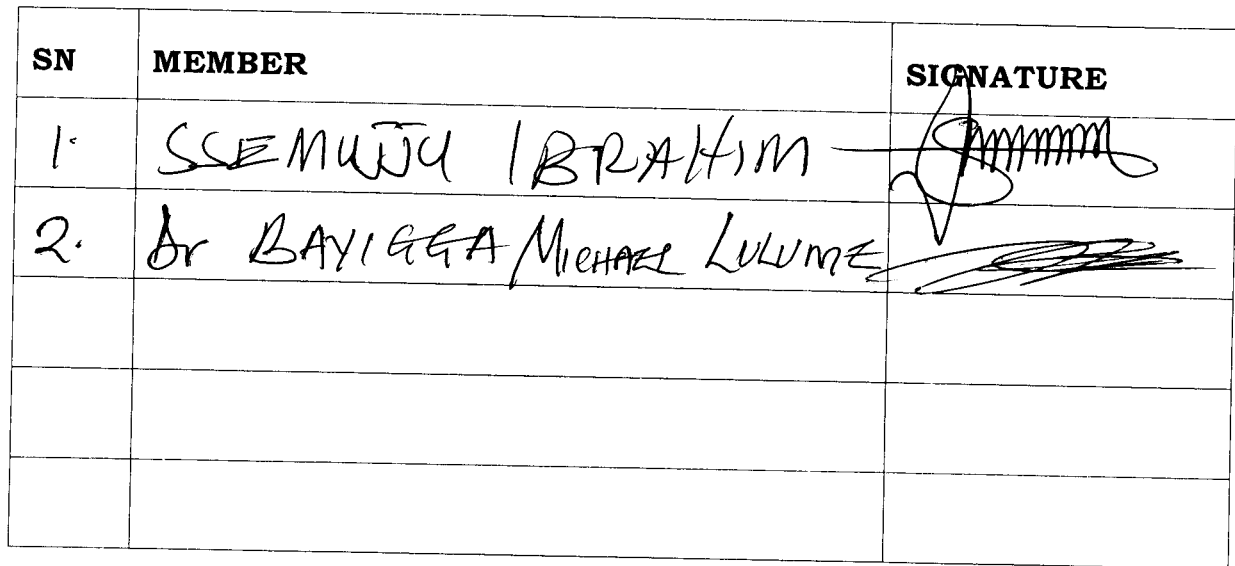 SN MEMBER SIGNATURE
1. SSEMUJJU IBRAHIM
2. Dr BAYIGGA MICHAEL LULUME